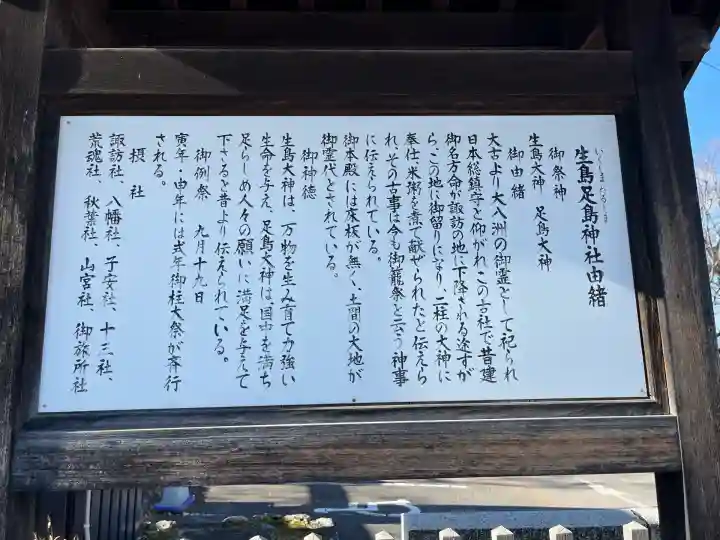 生島足島神社由緒
いくしまたるしま
御祭神
生島大神　足島大神
御由緒
太古より大八洲の御霊として祀られ
日本総鎮守と仰がれ、この古社で昔建
御名方命が諏訪の地に下降される途すが
ら、この地に御留りになり、二柱の大神に
奉仕し米粥を煮て献ぜられたと伝えら
れ、その古事は今も御籠祭と云う神事
に伝えられている。
御本殿には床板が無く、土間の大地が
御霊代とされている。
御神徳
生島大神は、万物を生み育て力強い
生命を与え、足島大神は、国中を満ち
足らしめ人々の願いに満足を与えて
下さると昔より伝えられている。
御例祭　九月十九日
寅年・申年には式年御柱大祭が斉行
される。
摂社
諏訪社、八幡社、子安社、十三社、
荒魂社、秋葉社、山宮社、御旅所社